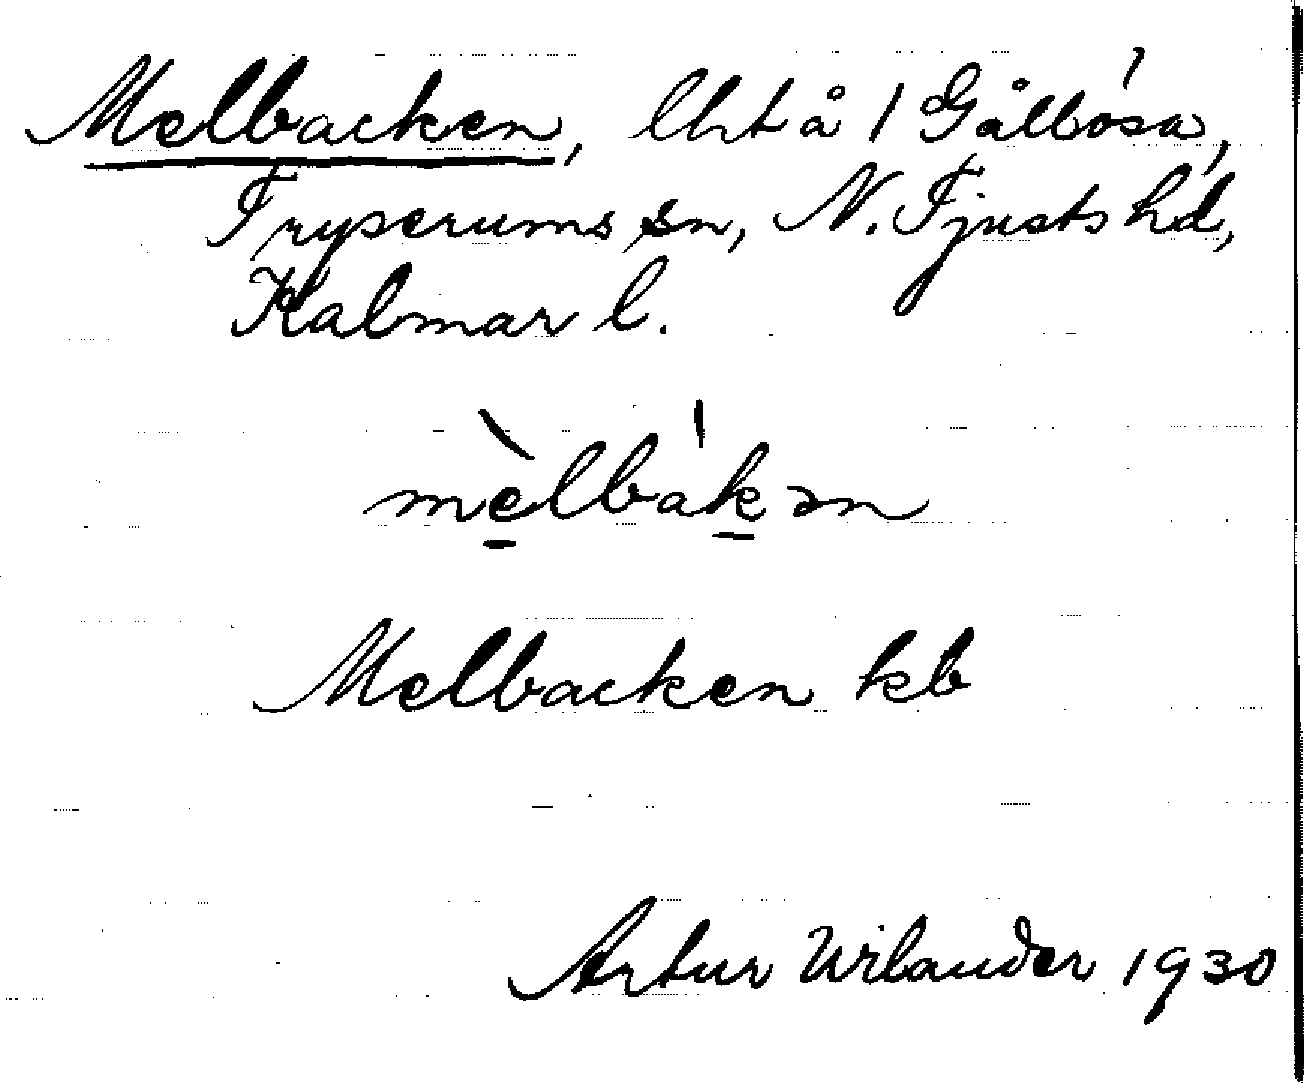 Melbacken, lht å 1 Gålbósa,
Tryserums sn, N. Tjusts hd,
Kalmar l.
mèlbákən
Melbacken kb
Artur Wilander 1930